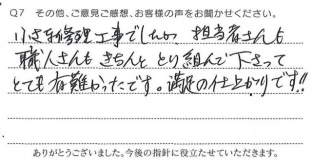 Q7 その他、ご意見ご感想、お客様の声をお聞かせください。
小さな修理工事でしたが、担当者さんも
職人さんもきちんととり組んで下さって
とても有難かったです。満足の仕上がりです!!
ありがとうございました。今後の指針に役立たせていただきます。